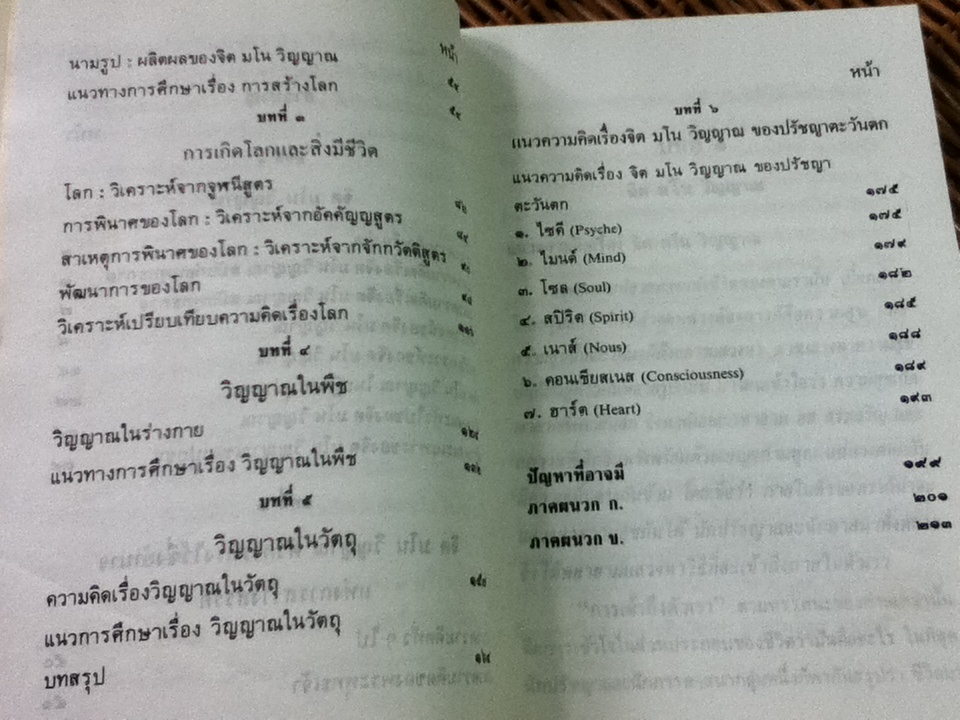 หน้า
นามรูป : ผลิตผลของจิต มโน วิญญาณ
แนวทางการศึกษาเรื่อง การสร้างโลก
บทที่ ๓
การเกิดโลกและสิ่งมีชีวิต
โลก : วิเคราะห์จากจูฬนีสูตร
การพินาศของโลก : วิเคราะห์จากอัคคัญญสูตร
สาเหตุการพินาศของโลก : วิเคราะห์จากจักกวัตติสูตร
พัฒนาการของโลก
วิเคราะห์เปรียบเทียบความคิดเรื่องโลก
บทที่ ๔
วิญญาณในพืช
วิญญาณในร่างกาย
แนวทางการศึกษาเรื่อง วิญญาณในพืช
บทที่ ๕
วิญญาณในวัตถุ
ความคิดเรื่องวิญญาณในวัตถุ
แนวการศึกษาเรื่อง วิญญาณในวัตถุ
บทสรุป
หน้า
บทที่ ๖
แนวความคิดเรื่องจิต มโน วิญญาณ ของปรัชญาตะวันตก
แนวความคิดเรื่อง จิต มโน วิญญาณ ของปรัชญา
ตะวันตก ๑๗๕
๑. ไซคี (Psyche) ๑๗๕
๒. ไมนด์ (Mind) ๑๗๙
๓. โซล (Soul) ๑๘๒
๔. สปิริต (Spirit) ๑๘๕
๕. เนาส์ (Nous) ๑๘๘
๖. คอนเชียสเนส (Consciousness) ๑๘๙
๗. ฮาร์ต (Heart) ๑๙๓
ปัญหาที่อาจมี ๑๙๙
ภาคผนวก ก. ๒๐๑
ภาคผนวก ข. ๒๑๓